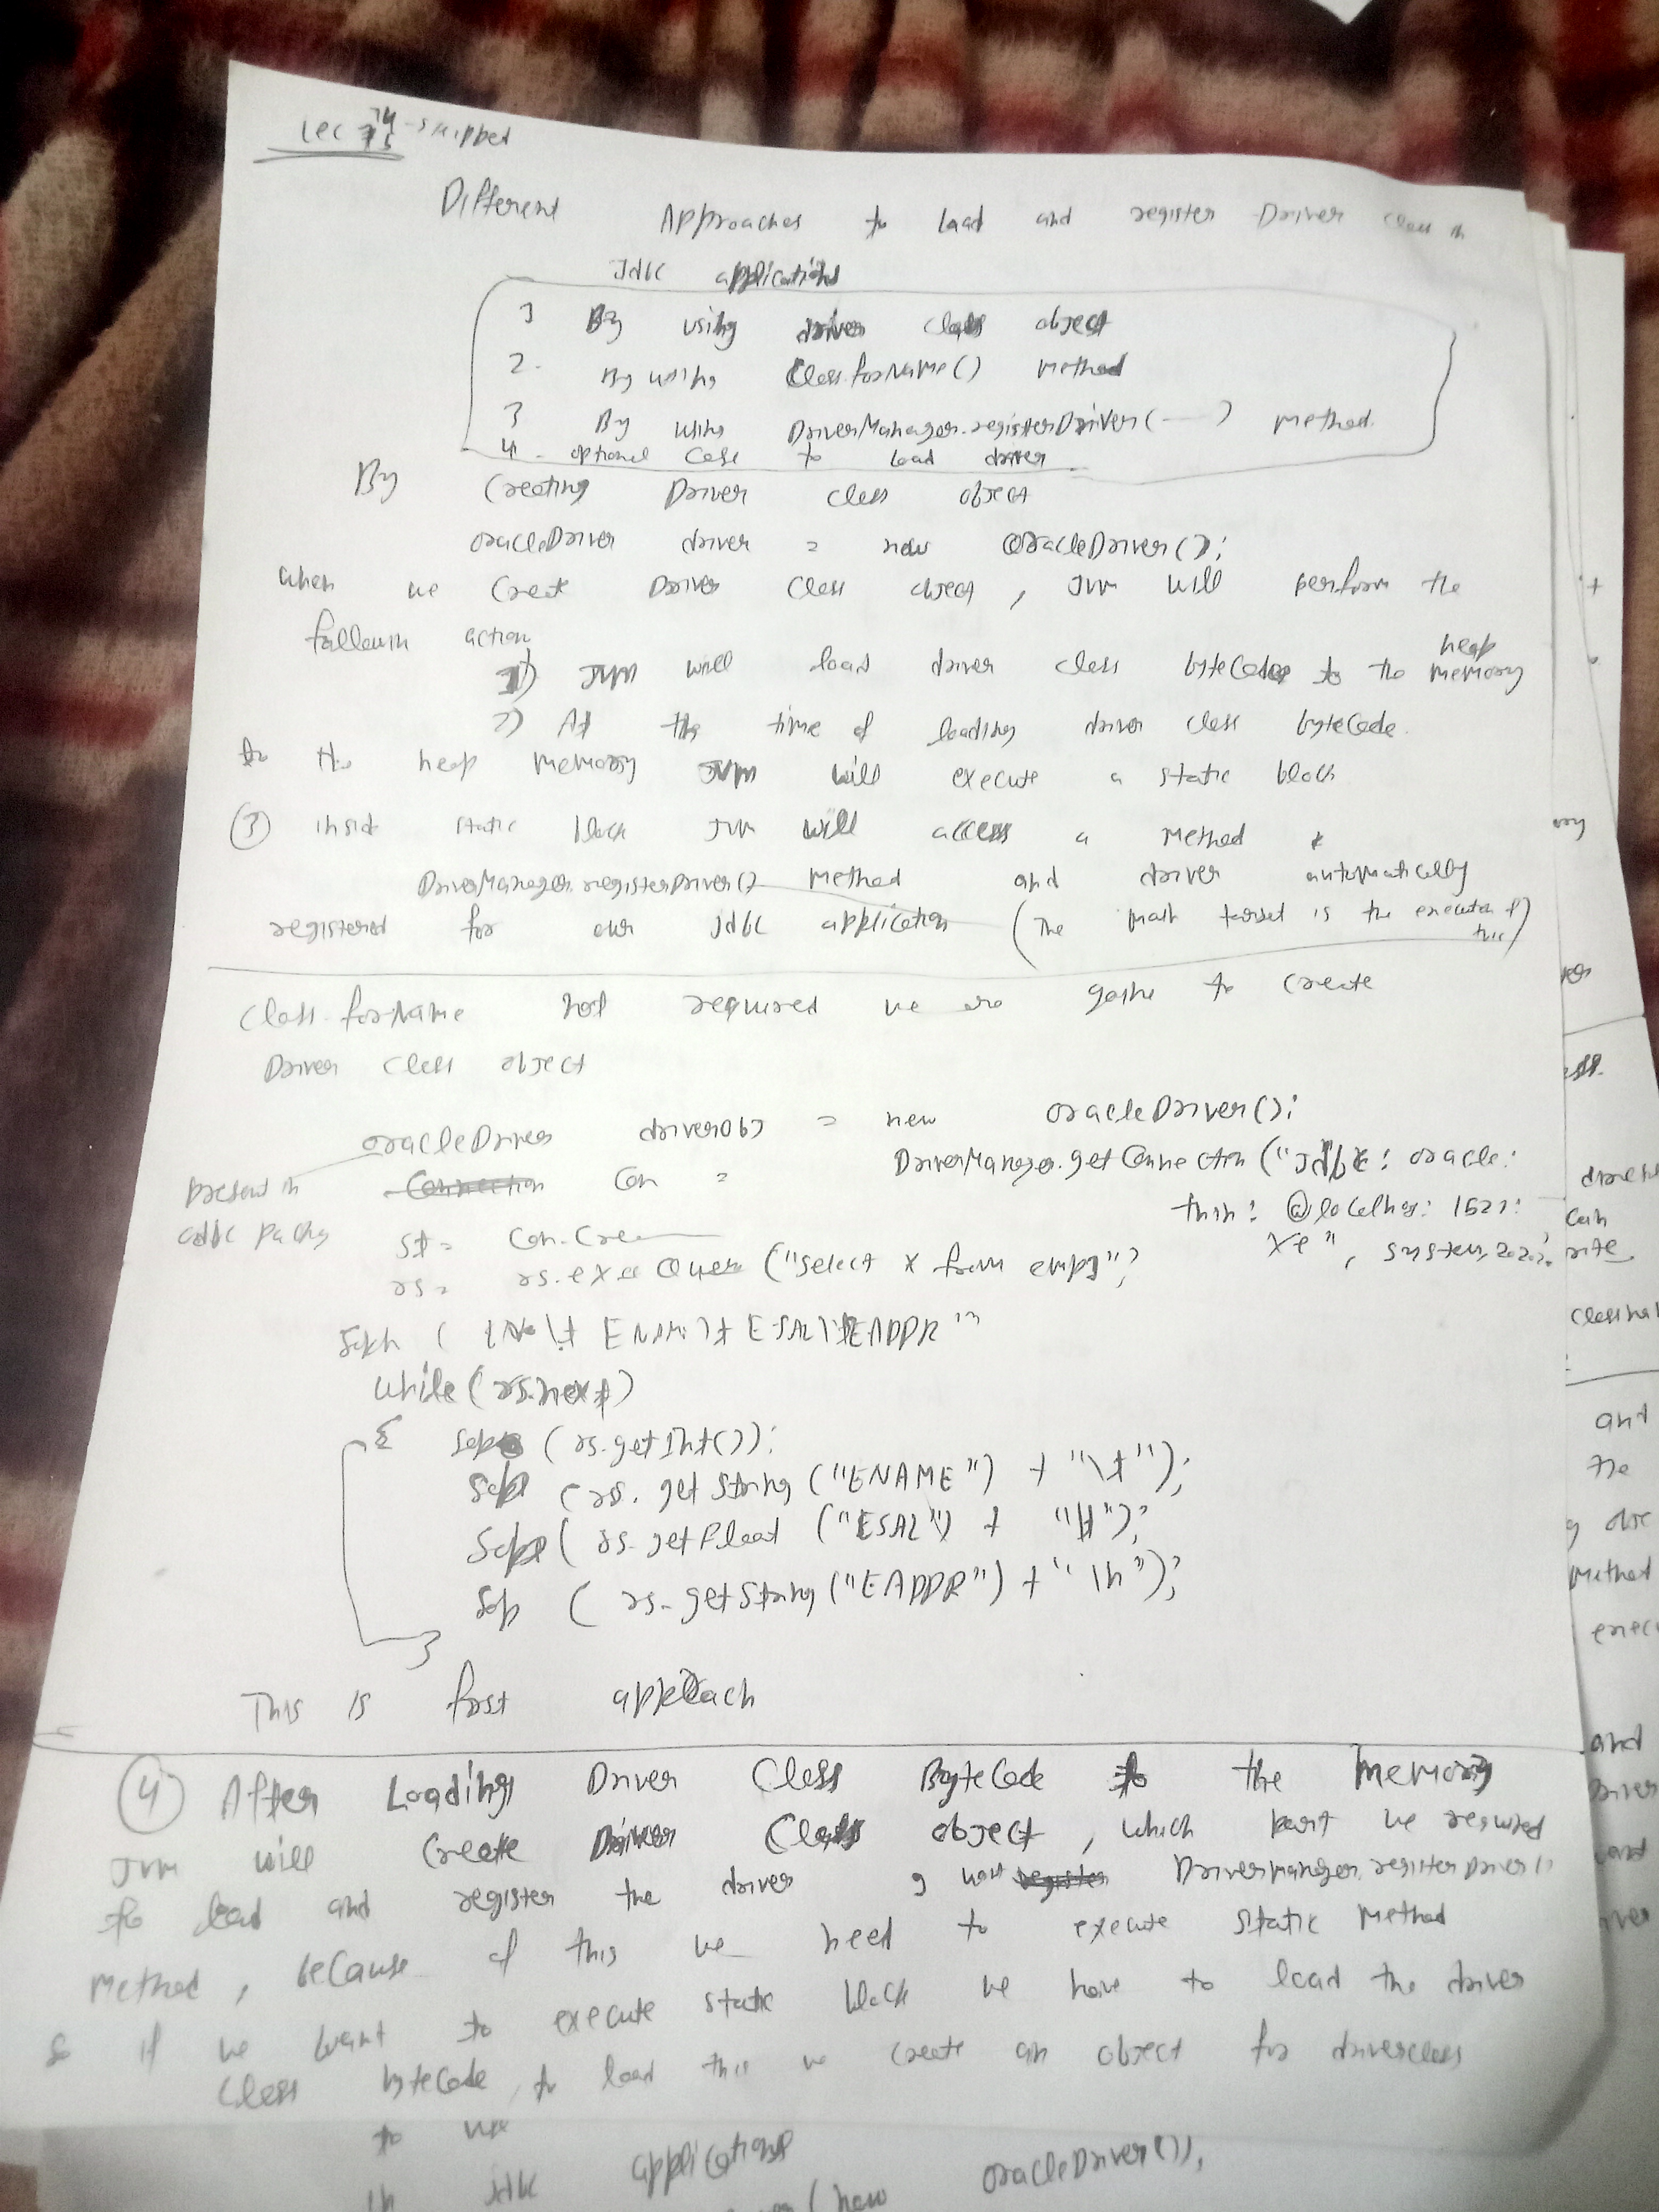 Lec 74 - skipped
Different Approaches to load and register Driver class in
Jdbc applications
1 By using driver class object
2. By using Class.forName() method
3 By using DriverManager.registerDriver(----) method.
4. optional case to load driver
By Creating Driver class object
oracleDriver driver = new OracleDriver();
when we create Driver class object, JVM will perform the
action
1) JVM will load driver class byteCode to the heap memory
2) At the time of loading driver class byteCode.
to the heap memory JVM will execute a static block
(3) inside static block JVM will access a method
DriverManager.registerDriver() method and driver automatically
registered for our Jdbc application (The main target is the execution of this)
Class.forName not required we are going to create
Driver class object
oracleDriver driverobj = new oracleDriver();
Con = DriverManager.getConnection("Jdbc: oracle:
present in
thin: @localhos: 1521:
St = Con.Crea
xe", system,
rs = rs.exe Quer ("select * from emp1");
ENAME \t ESAL \t EADDR "
while (rs.next)
{ Sop (rs.getInt());
Sop (rs.getString ("ENAME") + "\t");
Sop (rs.getFloat ("ESAL") + "\t");
Sop (rs.getString ("EADDR") + "\n");
}
This is first approach
(4) After Loading Driver Class ByteCode to the memory
JVM will Create Driver Class object, which part we required
to load and register the driver DriverManager.registerDriver()
method, because of this we need to execute static method
So if we want to execute static block we have to load the driver
class byteCode, to load this we create an object for driverclass
to use
in jdbc applications
(new oracleDriver());
and
the
method
and